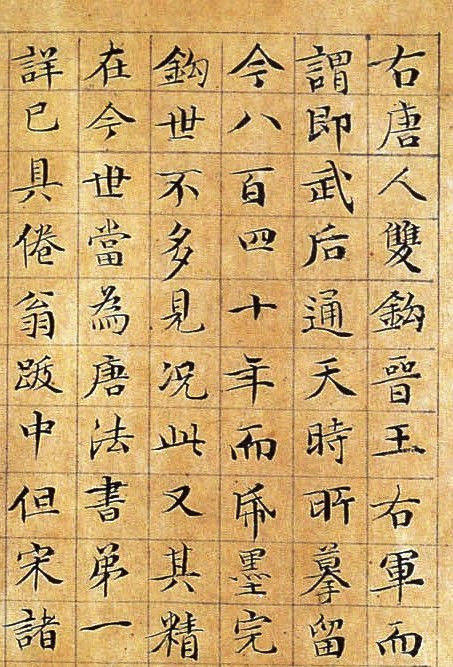 右唐人雙鈎晉王右軍而
謂即武后通天時所摹留
今八百四十年而帋墨完
鈎世不多見況此又其精
在今世當為唐法書弟一
詳已具倦翁跋中但宋諸